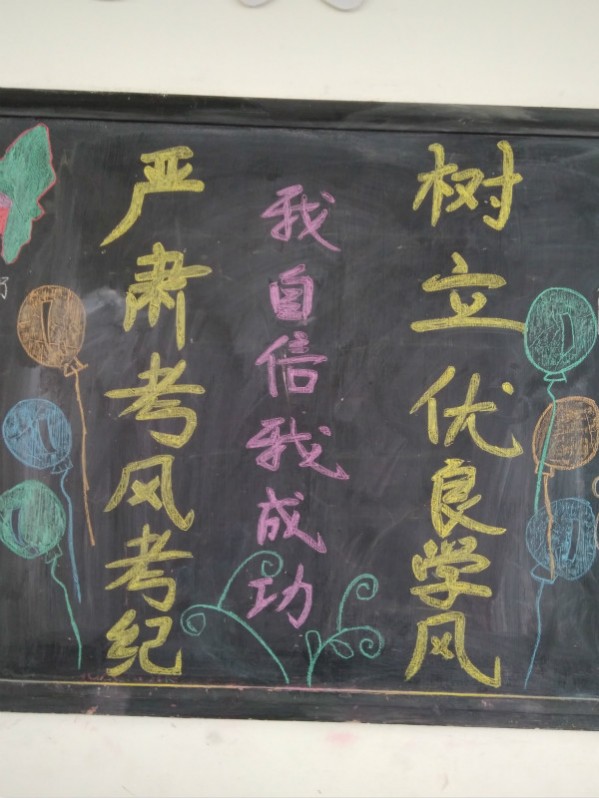 树立优良学风
我自信我成功
严肃考风考纪